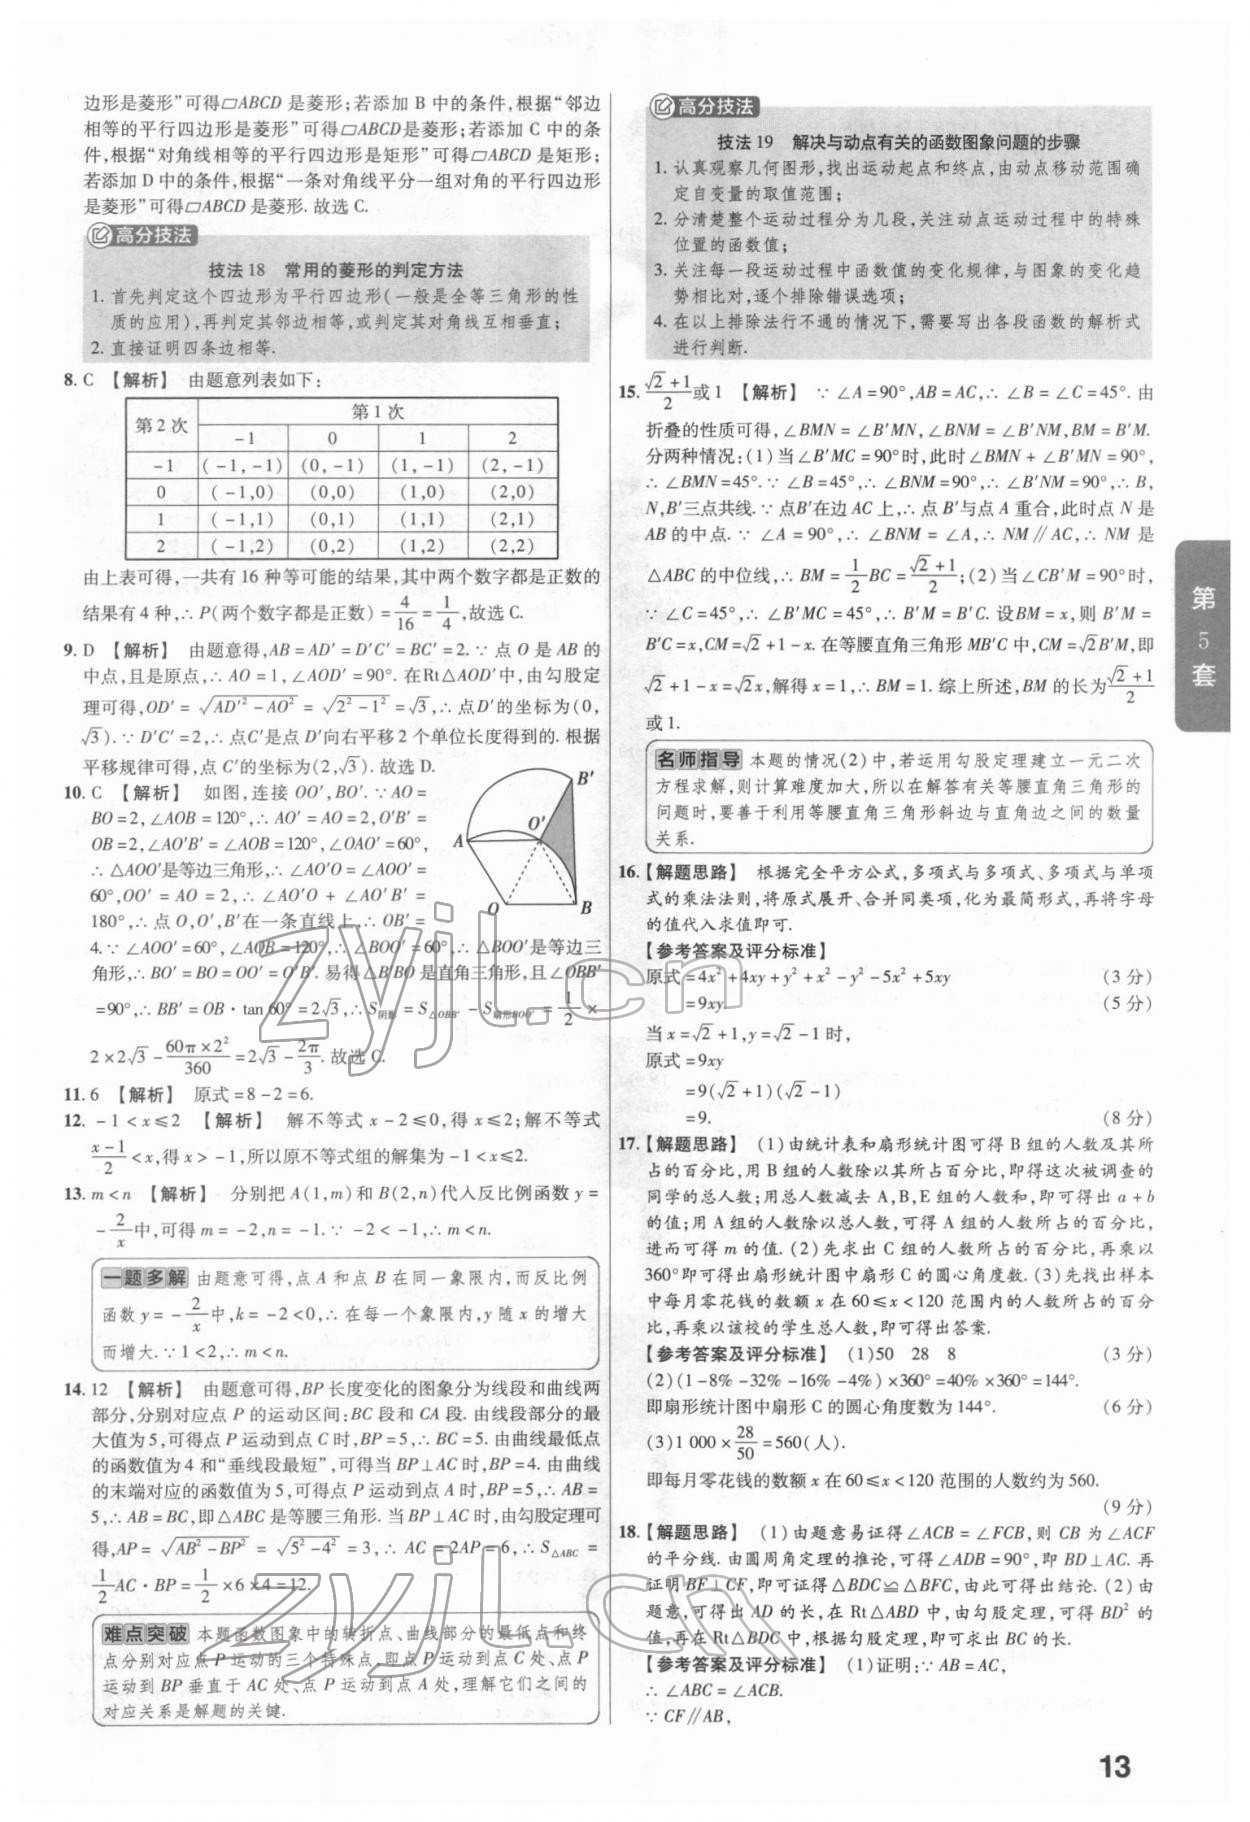 边形是菱形”可得▱ABCD 是菱形;若添加 B 中的条件,根据“邻边
相等的平行四边形是菱形”可得▱ABCD是菱形;若添加 C 中的条
件,根据“对角线相等的平行四边形是矩形”可得▱ABCD 是矩形;
若添加 D 中的条件,根据“一条对角线平分一组对角的平行四边形
是菱形”可得▱ABCD 是菱形. 故选 C.
高分技法
技法 18 常用的菱形的判定方法
1. 首先判定这个四边形为平行四边形(一般是全等三角形的性
质的应用),再判定其邻边相等,或判定其对角线互相垂直;
2. 直接证明四条边相等.
8. C 【解析】 由题意列表如下:
第 2 次 第 1 次
-1 0 1 2
-1 (-1,-1) (0,-1) (1,-1) (2,-1)
0 (-1,0) (0,0) (1,0) (2,0)
1 (-1,1) (0,1) (1,1) (2,1)
2 (-1,2) (0,2) (1,2) (2,2)
由上表可得,一共有 16 种等可能的结果,其中两个数字都是正数的
结果有 4 种,∴ P(两个数字都是正数) = 4/16 = 1/4,故选 C.
9. D 【解析】 由题意得,AB = AD′ = D′C′ = BC′ = 2. ∵ 点 O 是 AB 的
中点,且是原点,∴ AO = 1,∠AOD′ = 90°. 在Rt△AOD′中,由勾股定
理可得,OD′ = √(AD′² - AO²) = √(2² - 1²) = √3,∴ 点D′的坐标为(0,
√3). ∵ D′C′ = 2,∴ 点C′是点 D′向右平移 2 个单位长度得到的. 根据
平移规律可得,点 C′的坐标为(2,√3). 故选 D.
10. C 【解析】 如图,连接 OO′,BO′. ∵ AO =
BO = 2,∠AOB = 120°,∴ AO′ = AO = 2,O′B′ =
OB = 2,∠AO′B′ = ∠AOB = 120°,∠OAO′ = 60°,
∴ △AOO′是等边三角形,∴ ∠AO′O = ∠AOO′ =
60°,OO′ = AO = 2,∴ ∠AO′O + ∠AO′B′ =
180°,∴ 点 O,O′,B′在一条直线上,∴ OB′ =
4. ∵ ∠AOO′ = 60°,∠AOB = 120°,∴ ∠BOO′ = 60°,∴ △BOO′是等边三
角形,∴ BO′ = BO = OO′ = O′B′. 易得△B′BO 是直角三角形,且∠OBB′
= 90°,∴ BB′ = OB · tan 60° = 2√3,∴ S阴影 = S△OBB′ - S扇形BOO′ = 1/2 ×
2 × 2√3 - 60π × 2²/360 = 2√3 - 2π/3. 故选 C.
B′
O′
A
O
B
11. 6 【解析】 原式 = 8 - 2 = 6.
12. -1 < x ≤ 2 【解析】 解不等式 x - 2 ≤ 0,得 x ≤ 2;解不等式
(x-1)/2 < x,得 x > -1,所以原不等式组的解集为 -1 < x ≤ 2.
13. m < n 【解析】 分别把 A(1,m)和 B(2,n)代入反比例函数 y =
-2/x中,可得 m = -2,n = -1. ∵ -2 < -1,∴ m < n.
一题多解 由题意可得,点 A 和点 B 在同一象限内,而反比例
函数 y = -2/x中,k = -2 < 0,∴ 在每一个象限内,y 随 x 的增大
而增大. ∵ 1 < 2,∴ m < n.
14. 12 【解析】 由题意可得,BP 长度变化的图象分为线段和曲线两
部分,分别对应点 P 的运动区间:BC 段和 CA 段. 由线段部分的最
大值为 5,可得点 P 运动到点 C 时,BP = 5,∴ BC = 5. 由曲线最低点
的函数值为 4 和“垂线段最短”,可得当 BP⊥AC 时,BP = 4. 由曲线
的末端对应的函数值为 5,可得点 P 运动到点 A 时,BP = 5,∴ AB =
5,∴ AB = BC,即△ABC 是等腰三角形. 当 BP⊥AC 时,由勾股定理可
得,AP = √(AB² - BP²) = √(5² - 4²) = 3,∴ AC = 2AP = 6,∴ S△ABC =
1/2 AC · BP = 1/2 × 6 × 4 = 12.
难点突破 本题函数图象中的转折点、曲线部分的最低点和终
点分别对应点 P 运动的三个特殊点,即点 P 运动到点 C 处、点 P
运动到 BP 垂直于 AC 处、点 P 运动到点 A 处,理解它们之间的
对应关系是解题的关键.
高分技法
技法 19 解决与动点有关的函数图象问题的步骤
1. 认真观察几何图形,找出运动起点和终点,由动点移动范围确
定自变量的取值范围;
2. 分清楚整个运动过程分为几段,关注动点运动过程中的特殊
位置的函数值;
3. 关注每一段运动过程中函数值的变化规律,与图象的变化趋
势相比对,逐个排除错误选项;
4. 在以上排除法行不通的情况下,需要写出各段函数的解析式
进行判断.
15. (√2+1)/2或 1 【解析】 ∵ ∠A = 90°,AB = AC,∴ ∠B = ∠C = 45°. 由
折叠的性质可得,∠BMN = ∠B′MN,∠BNM = ∠B′NM,BM = B′M.
分两种情况:(1)当∠B′MC = 90°时,此时∠BMN + ∠B′MN = 90°,
∴ ∠BMN = 45°. ∵ ∠B = 45°,∴ ∠BNM = 90°,∴ ∠B′NM = 90°,∴ B,
N,B′三点共线. ∵ 点B′在边 AC 上,∴ 点 B′与点 A 重合,此时点 N 是
AB 的中点. ∵ ∠A = 90°,∴ ∠BNM = ∠A,∴ NM∥AC,∴ NM 是
△ABC 的中位线,∴ BM = 1/2 BC = (√2+1)/2;(2)当∠CB′M = 90°时,
∵ ∠C = 45°,∴ ∠B′MC = 45°,∴ B′M = B′C. 设BM = x,则 B′M =
B′C = x,CM = √2 + 1 - x. 在等腰直角三角形 MB′C 中,CM = √2B′M,即
√2 + 1 - x = √2x,解得 x = 1,∴ BM = 1. 综上所述,BM 的长为(√2+1)/2
或 1.
名师指导 本题的情况(2)中,若运用勾股定理建立一元二次
方程求解,则计算难度加大,所以在解答有关等腰直角三角形的
问题时,要善于利用等腰直角三角形斜边与直角边之间的数量
关系.
16. 【解题思路】 根据完全平方公式,多项式与多项式、多项式与单项
式的乘法法则,将原式展开、合并同类项,化为最简形式,再将字母
的值代入求值即可.
【参考答案及评分标准】
原式 = 4x² + 4xy + y² + x² - y² - 5x² + 5xy (3 分)
= 9xy. (5 分)
当 x = √2 + 1,y = √2 - 1 时,
原式 = 9xy
= 9(√2 + 1)(√2 - 1)
= 9. (8 分)
17. 【解题思路】 (1)由统计表和扇形统计图可得 B 组的人数及其所
占的百分比,用 B 组的人数除以其所占百分比,即得这次被调查的
同学的总人数;用总人数减去 A,B,E 组的人数和,即可得出 a + b
的值;用 A 组的人数除以总人数,可得 A 组的人数所占的百分比,
进而可得 m 的值. (2)先求出 C 组的人数所占的百分比,再乘以
360°即可得出扇形统计图中扇形 C 的圆心角度数. (3)先找出样本
中每月零花钱的数额 x 在 60 ≤ x < 120 范围内的人数所占的百分
比,再乘以该校的学生总人数,即可得出答案.
【参考答案及评分标准】 (1)50 28 8 (3 分)
(2)(1 - 8% - 32% - 16% - 4%) × 360° = 40% × 360° = 144°.
即扇形统计图中扇形 C 的圆心角度数为 144°. (6 分)
(3)1 000 × 28/50 = 560(人).
即每月零花钱的数额 x 在 60 ≤ x < 120 范围的人数约为 560.
(9 分)
18. 【解题思路】 (1)由题意易证得∠ACB = ∠FCB,则 CB 为∠ACF
的平分线. 由圆周角定理的推论,可得∠ADB = 90°,即 BD⊥AC. 再
证明 BF⊥CF,即可证得△BDC≌△BFC,由此可得出结论. (2)由
题意,可得出 AD 的长,在 Rt△ABD 中,由勾股定理,可得 BD² 的
值,再在 Rt△BDC 中,根据勾股定理,即可求出 BC 的长.
【参考答案及评分标准】 (1)证明:∵ AB = AC,
∴ ∠ABC = ∠ACB.
∵ CF∥AB,
第
5
套
13
zyjl.cn
zyjl.cn